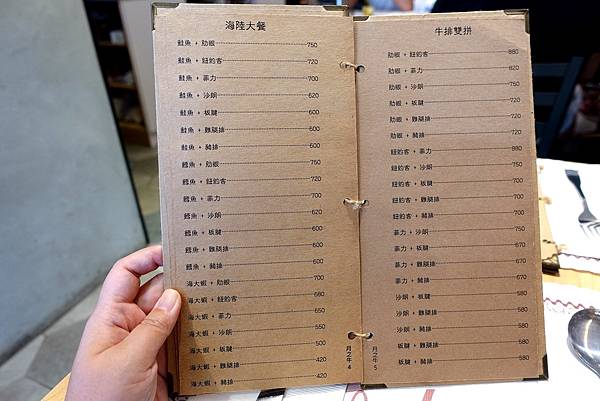 海陸大餐
鮭魚 + 肋眼 750
鮭魚 + 紐約客 720
鮭魚 + 菲力 700
鮭魚 + 沙朗 620
鮭魚 + 板腱 600
鮭魚 + 雞腿排 600
鮭魚 + 豬排 600
鱈魚 + 肋眼 750
鱈魚 + 紐約客 720
鱈魚 + 菲力 700
鱈魚 + 沙朗 620
鱈魚 + 板腱 600
鱈魚 + 雞腿排 600
鱈魚 + 豬排 600
海大蝦 + 肋眼 700
海大蝦 + 紐約客 680
海大蝦 + 菲力 650
海大蝦 + 沙朗 550
海大蝦 + 板腱 500
海大蝦 + 雞腿排 420
海大蝦 + 豬排 420
月之牛 4
牛排雙拼
肋眼 + 紐約客 880
肋眼 + 菲力 820
肋眼 + 沙朗 750
肋眼 + 板腱 720
肋眼 + 雞腿排 720
肋眼 + 豬排 720
紐約客 + 菲力 880
紐約客 + 沙朗 750
紐約客 + 板腱 700
紐約客 + 雞腿排 700
紐約客 + 豬排 700
菲力 + 沙朗 750
菲力 + 板腱 670
菲力 + 雞腿排 670
菲力 + 豬排 670
沙朗 + 板腱 580
沙朗 + 雞腿排 580
沙朗 + 豬排 580
板腱 + 雞腿排 580
板腱 + 豬排 580
月之牛 5